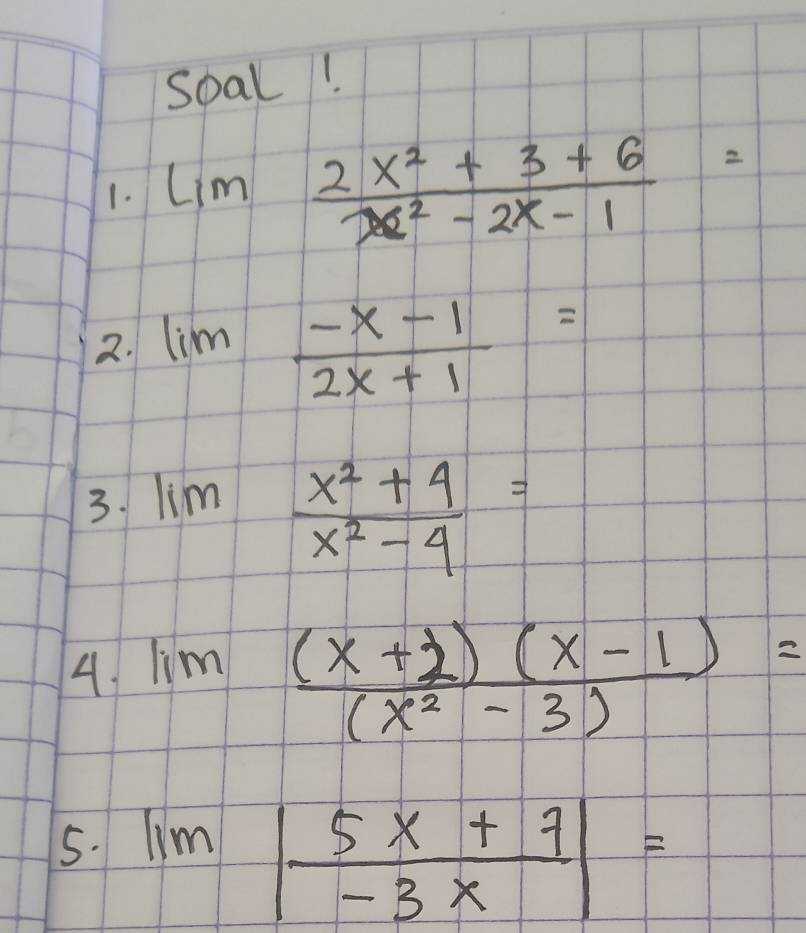 Soal !
1. Lim (2x² + 3 + 6)/(x² - 2x - 1) =
2. lim (-x - 1)/(2x + 1) =
3. lim (x² + 4)/(x² - 4) =
4. lim ((x + 2) (x - 1))/((x² - 3)) =
5. lim |(5x + 7)/(-3x)| =